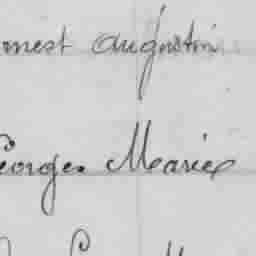 rnest Augustin
eorges Marie